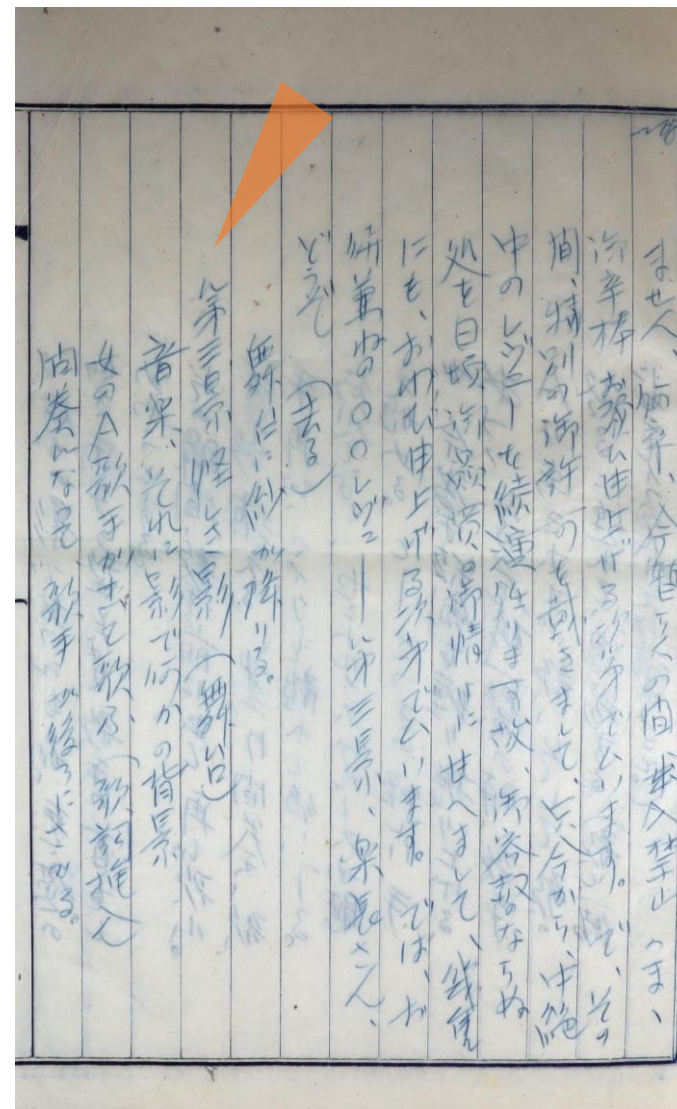 ません、偏へに今暫らくの間出入禁止のまゝ
御辛棒お願ひ申上げる次第でムいます。で、その
間、特別の御許可を戴きまして、只今から、中絶
中のレヴューを続演仕ります故、御容赦ならぬ
処を日頃御贔屓の御情けに甘へまして、幾重
にも、おわび申上げる次第でムいます。では、お
待兼ねの〇〇レヴュー第三景、楽長さん、
どうぞ (去る)
舞台に紗が降りる。
第三景 怪しき影 (舞台)
音楽、それに影で何かの背景
女のA歌手が出て歌ふ (歌詞挿入)
間奏になつて、歌手が後ろに